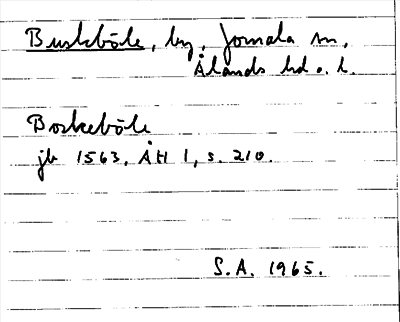 Buskböle, by, Jomala sn,
Ålands hd o. l.
Boskeböle
jb 1563, ÅH 1, s. 210.
S.A. 1965.